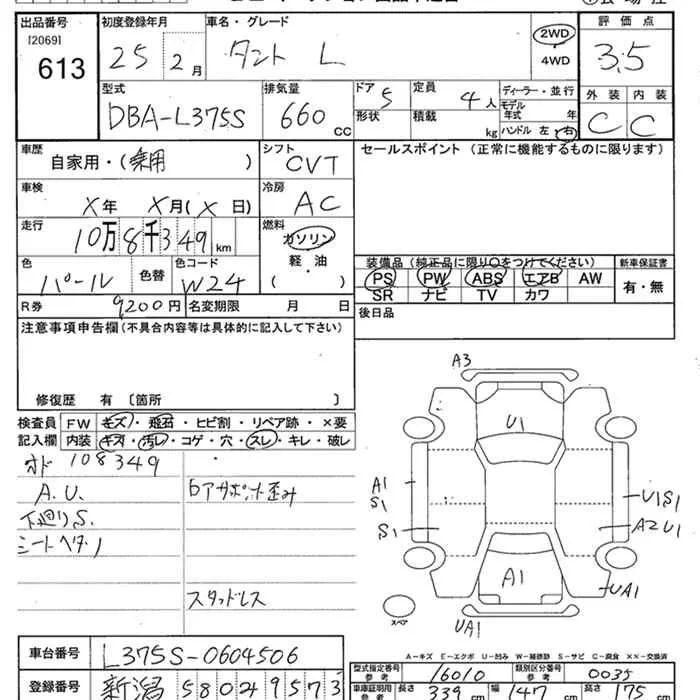 出品番号 初度登録年月 車名・グレード 評価点
[2069] 613 25 2月 タント L 2WD 4WD 3.5
型式 排気量 ドア 5 定員 4人 ディーラー・並行 外装 内装
DBA-L375S 660cc 形状 積載 kg モデル年式 年 ハンドル 左 右 C C
車歴 シフト セールスポイント(正常に機能するものに限ります)
自家用・(乗用) CVT
車検 冷房
X年 X月(X日) AC
走行 燃料
10万8千349km ガソリン
軽・油
( )
色 色替 色コード
パール W24
装備品(純正品に限り○をつけてください) 新車保証書
PS PW ABS エアB AW 有・無
SR ナビ TV カワ
R券 9200円 名変期限 月 日 後日品
注意事項申告欄(不具合内容等は具体的に記入して下さい)
修復歴 有 〔箇所 〕
検査員 FW キズ・飛石・ヒビ割・リペア跡・×要
記入欄 内装 キズ・汚レ・コゲ・穴・スレ・キレ・破レ
オド 108349
A.U. bアサポート歪み
下廻りS.
シートヘタリ
スタッドレス
A3
U1
A1
S1
S1
U1S1
A2U1
A1
UA1
UA1
スペア
A-キズ E-エクボ U-凹み W-補修跡 S-サビ C-腐食 XX-交換済
車台番号 L375S-0604506
型式指定番号 参考 16010 類別区分番号 参考 0035
登録番号 新潟 580 2 9573
車庫証明用 参考 長さ 339cm 幅 147cm 高さ 175cm